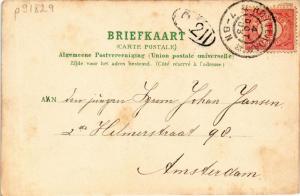 p91829
BRIEFKAART
(CARTE POSTALE)
Algemeene Postvereeniging (Union postale universelle)
Zijde voor het adres bestemd. (Côté réservé à l'adresse)
AAN den jongen Heer Johan Jansen,
2de Helmerstraat 98.
Amsterdam